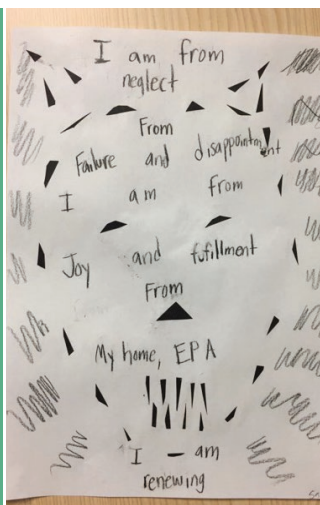 I am from
neglect
From
Failure and disappointment
I am from
Joy and fufillment
From
My home, EPA
I - am
renewing